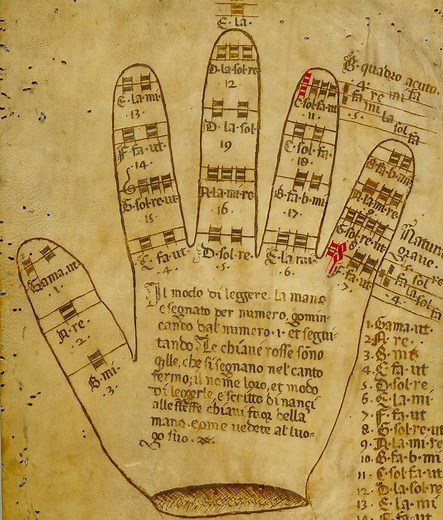 E · la ·
D·la·sol·re·
12 ·
E · la · mi ·
13 ·
C·sol·fa·ut
11
B · quadro acuto ·
4 · re mi fa
fa mi la
5 · sol
fa
F · fa · ut ·
14 ·
D · la · sol ·
19
C·sol·fa·
18 ·
G·fa·b·mi·
G·sol·re·ut·
15
A·la·mi·re·
16 ·
G·fa·b·mi·
17 ·
G·sol·re·ut
8
E · fa · ut ·
· 4 ·
D · sol·re·
· 5 ·
E · la · mi
· 6 ·
F · fa · ut
· 7 ·
Gama · ut ·
1 ·
A · re ·
· 2 ·
B · mi ·
3 ·
Il modo di leggere la mano
e segnato per numero, comin-
cando dal numero · 1 · et segui-
tando · Le chiavi rosse sono
qlle, che si segnano nel canto
fermo; il nome loro, et modo
di leggerle, e scritto di nanzi
alle stesse chiavi fuor della
mano, come vedete al luo-
go suo ·
1 · Gama · ut
2 · A · re
3 · B · mi
4 · C · fa · ut
5 · D · sol · re
6 · E · la · mi
7 · F · fa · ut
8 · G · sol · re · ut
9 · A · la · mi · re
10 · G · fa · b · mi
11 · C · sol · fa · ut
12 · D · la · sol · re
13 · E · la · mi
14 · F · fa · ut